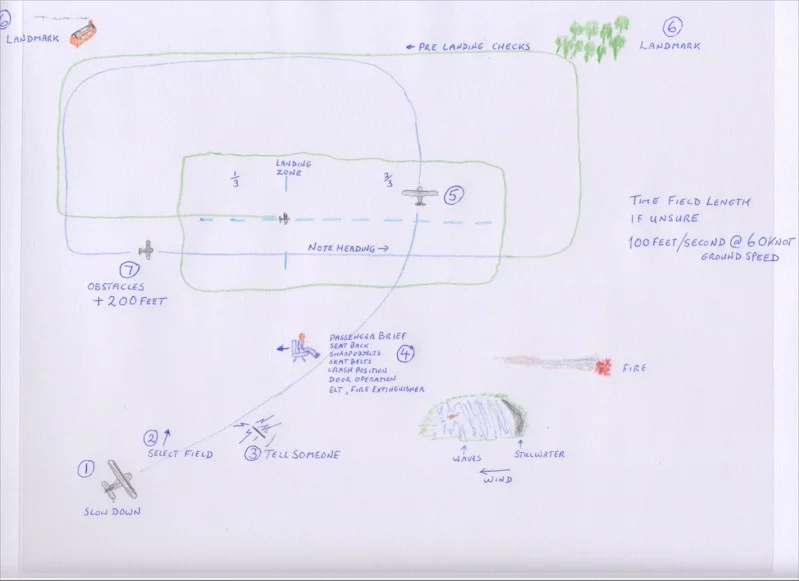 6
LANDMARK
← PRE LANDING CHECKS
6
LANDMARK
1/3
LANDING
ZONE
2/3
5
TIME FIELD LENGTH
IF UNSURE
100 FEET/SECOND @ 60 KNOT
GROUND SPEED
NOTE HEADING →
7
OBSTACLES
+ 200 FEET
4
PASSENGER BRIEF
SEAT BACK
SHARP OBJECTS
SEAT BELTS
CRASH POSITION
DOOR OPERATION
ELT, FIRE EXTINGUISHER
FIRE
2
SELECT FIELD
3 TELL SOMEONE
WAVES
STILLWATER
WIND
1
SLOW DOWN